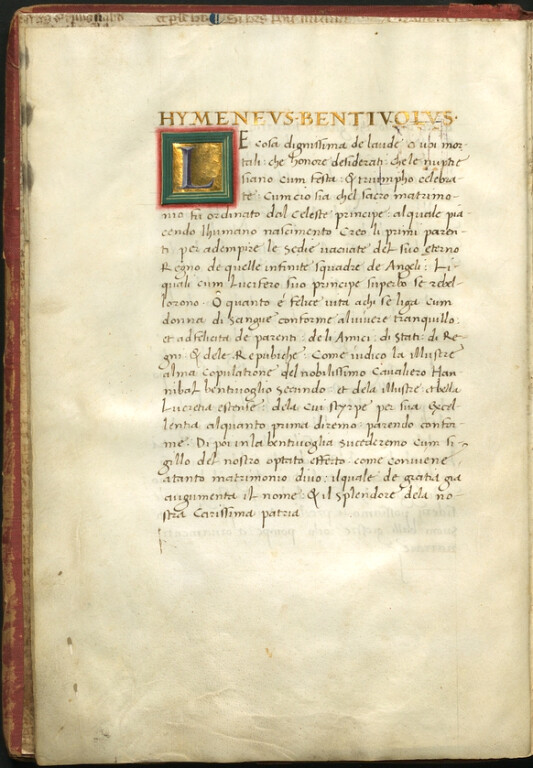 HYMENEVS·BENTIVOLVS·
LE cosa dignissima de laude o voi mor-
tali: che honore desiderati: che le nuptie
siano cum festa: & triumpho celebra-
te: Cumcio sia chel sacro matrimo-
nio fu ordinato dal Celeste principe: al quale pia-
cendo lhumano nascimento Creo li primi paren-
ti per adempire le Sedie vacuate del suo eterno
Regno de quelle infinite squadre de Angeli: Li-
quali cum Lucifero suo principe superbo se rebel-
lorono. O quanto e felice vita achi se liga cum
donna di Sangue conforme al vivere tranquillo:
et ad felicita de parenti: deli Amici: di Stati: di Re-
gni: & dele Republiche: Come iudico la illustre
alma Copulatione del nobilissimo Cavaliero Han-
nibal bentivoglio Secundo: et dela illustre et bella
Lucretia estense: dela Cui styrpe per sua Excel-
lentia alquanto prima diremo: parendo confor-
me: Di poi in la bentivoglia Succederemo Cum si-
gillo del nostro optato effetto: come conviene
atanto matrimonio divo: il quale de gratia gia
augumenta il nome: & il Splendore dela no-
stra Carissima patria